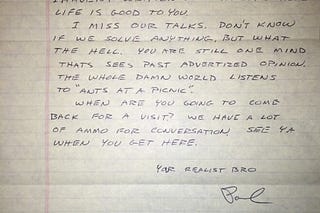 LIFE IS GOOD TO YOU.
I MISS OUR TALKS. DON'T KNOW
IF WE SOLVE ANYTHING, BUT WHAT
THE HELL. YOU ARE STILL ONE MIND
THATS SEES PAST ADVERTIZED OPINION.
THE WHOLE DAMN WORLD LISTENS
TO "ANTS AT A PICNIC".
WHEN ARE YOU GOING TO COME
BACK FOR A VISIT? WE HAVE A LOT
OF AMMO FOR CONVERSATION. SEE YA
WHEN YOU GET HERE.
YOR REALIST BRO